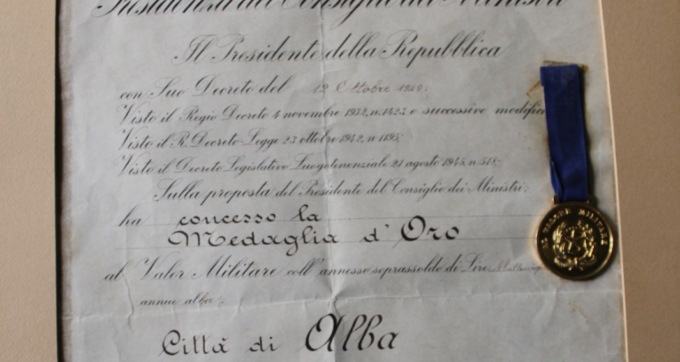 Presidenza del Consiglio dei Ministri
Il Presidente della Repubblica
con Suo Decreto del 12 Ottobre 1949:
Visto il Regio Decreto 4 novembre 1932, n. 1423 e successive modific
Visto il R. Decreto Legge 23 ottobre 1942, n. 1195;
Visto il Decreto Legislativo Luogotenenziale 21 agosto 1945, n. 518;
Sulla proposta del Presidente del Consiglio dei Ministri;
ha concesso la
Medaglia d'Oro
al Valor Militare coll'annesso soprassoldo di Lire
annue alla:
Città di Alba
AL VALORE MILITARE